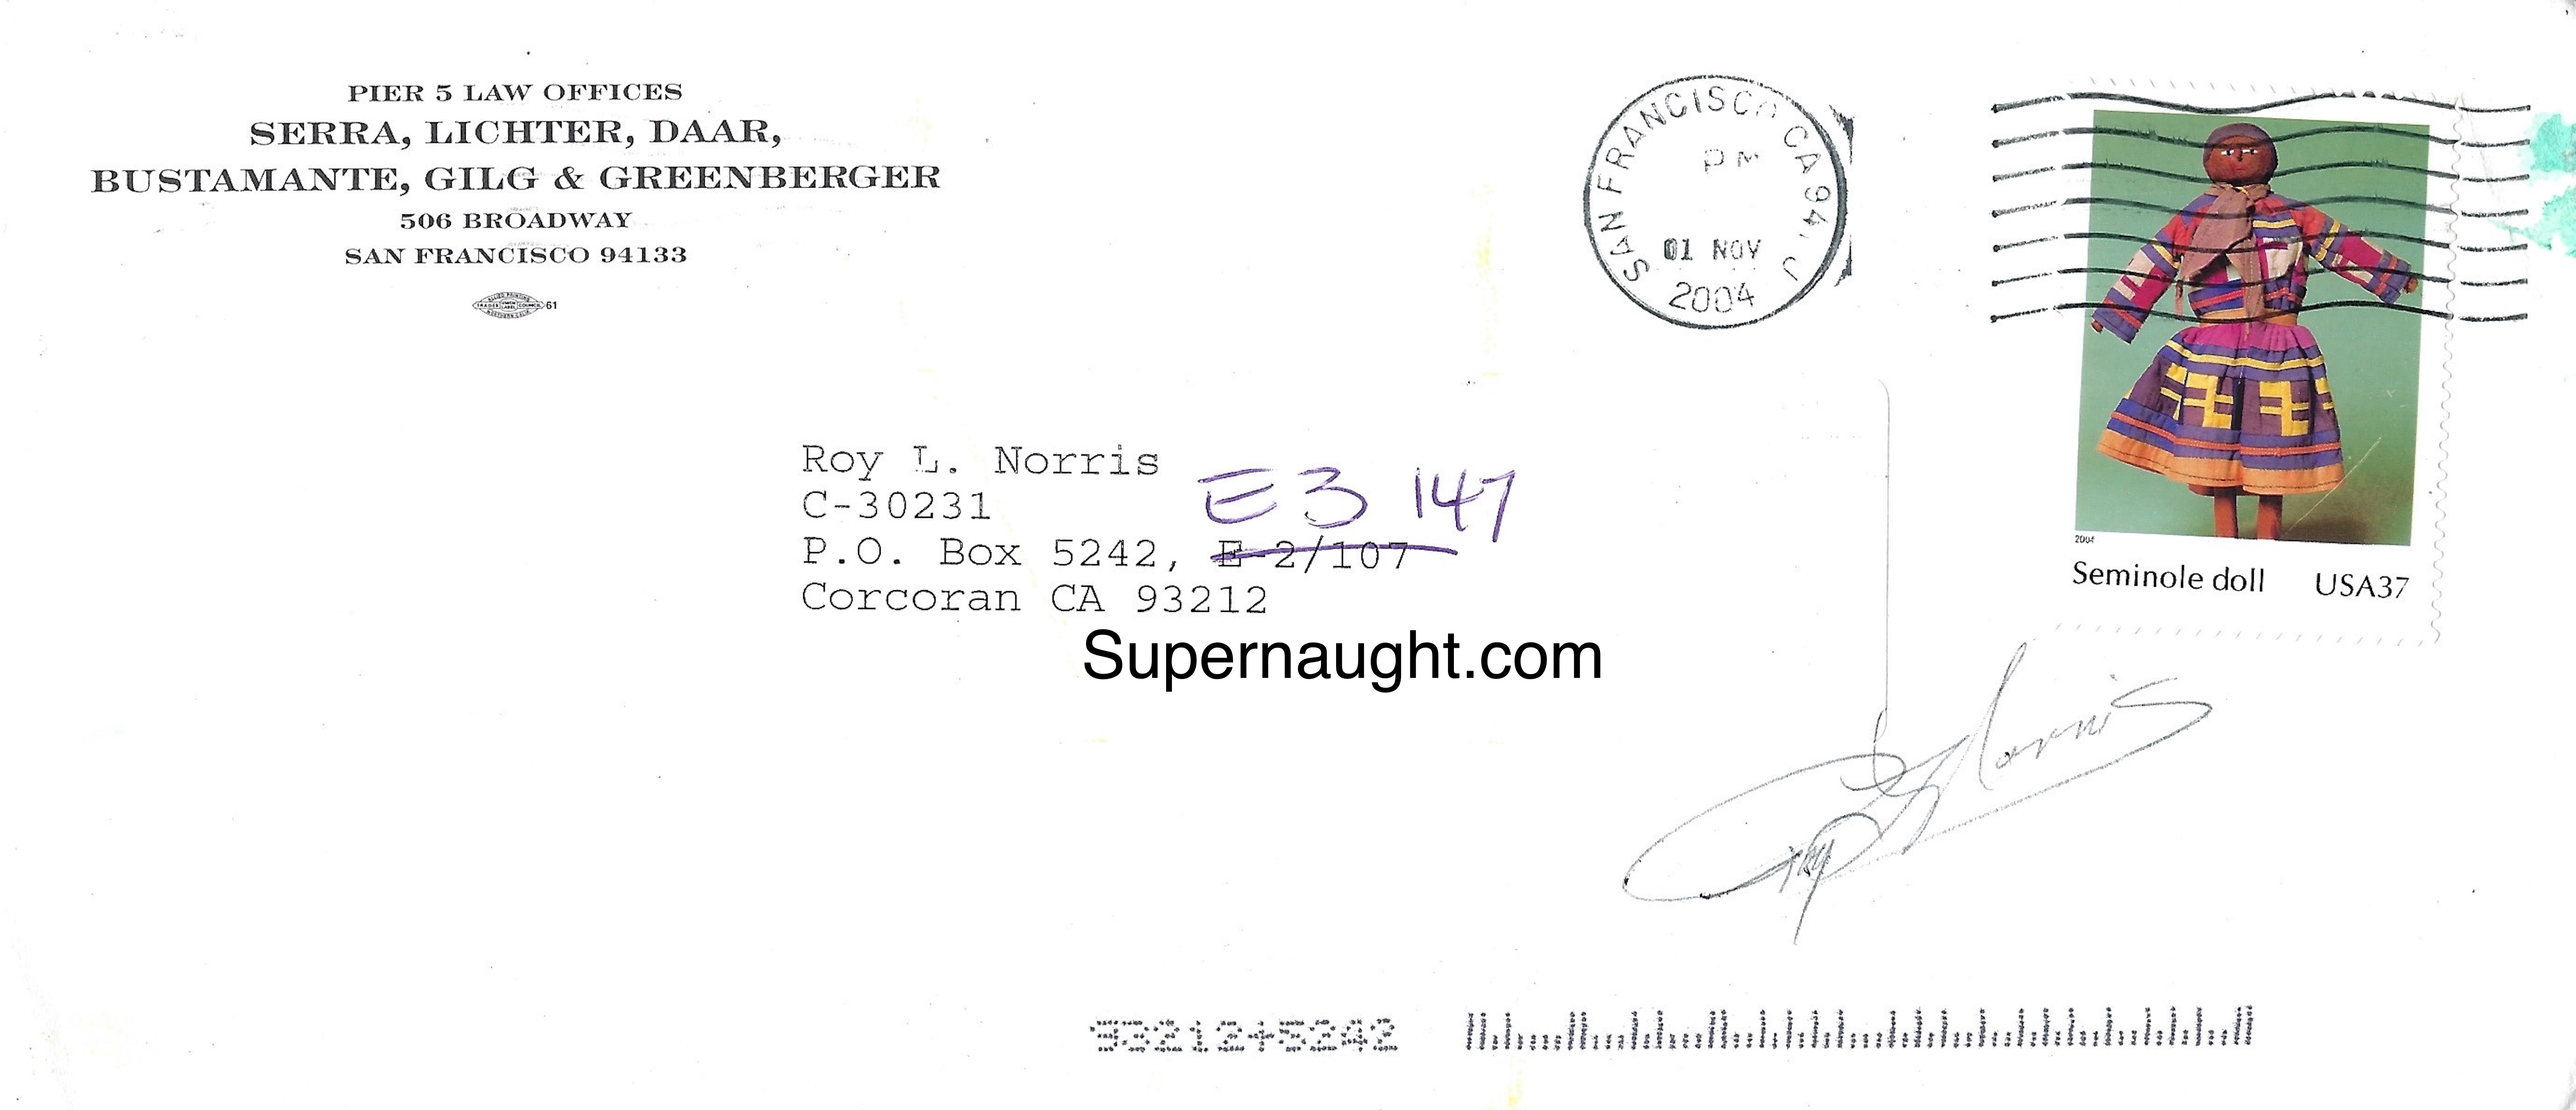 PIER 5 LAW OFFICES
SERRA, LICHTER, DAAR,
BUSTAMANTE, GILG & GREENBERGER
506 BROADWAY
SAN FRANCISCO 94133
61
SAN FRANCISCO CA
PM
01 NOV
2004
2004
Seminole doll USA37
Roy L. Norris
C-30231
E3 147
P.O. Box 5242, E-2/107
Corcoran CA 93212
Supernaught.com
Roy Norris
93212+5242